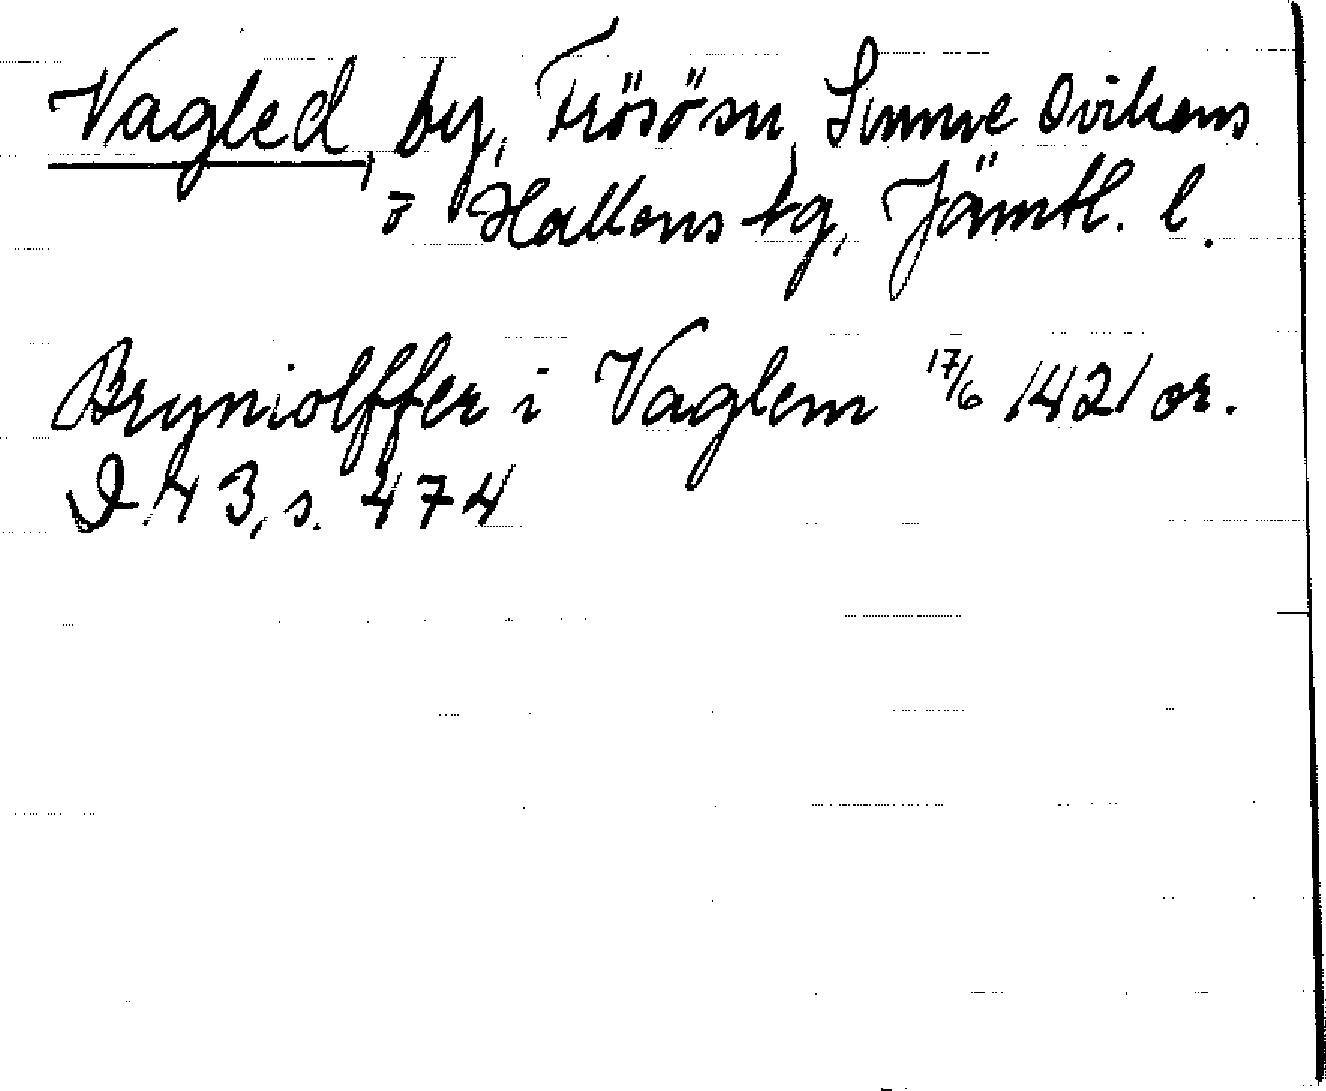 Vagled, by, Frösösn, Sunne Ovikens
o Hallens tg, Jämtl. l.
Bryniolffer i Vaglem 17/6 1421 or.
D 43, s. 474